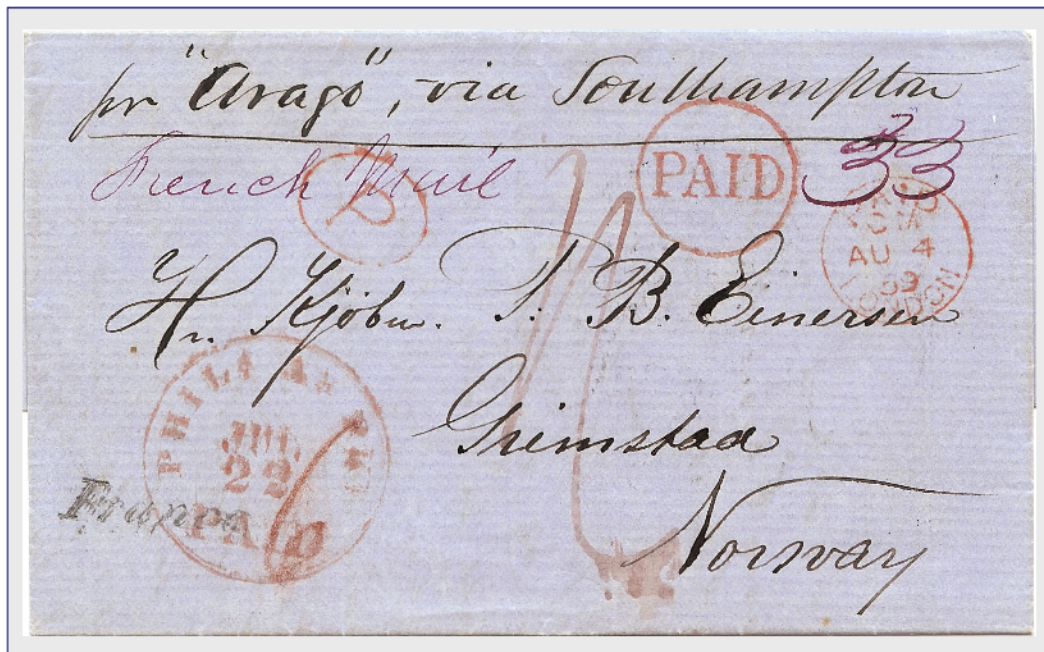 pr "Arago", via Southampton
French Mail
PAID
33
PAID
AU 4
59
LONDON
Hr. Kjöbm. P. B. Einersen
Grimstad
Norway
PHILA
JUL
22
PAID
Franco